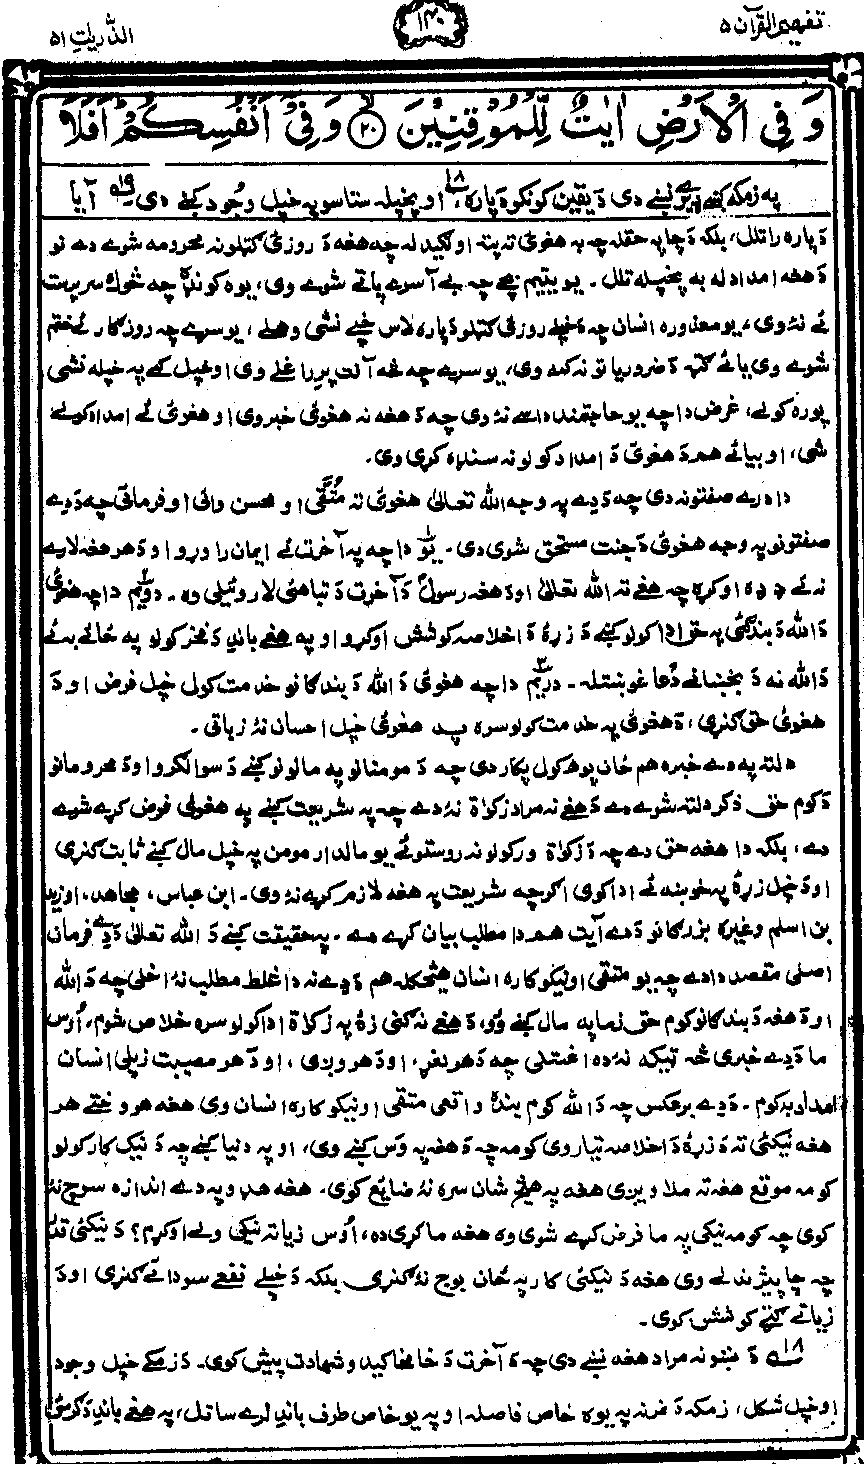 تفهیم القرآن ۵
۱۴۰
الذّٰریٰت ۵۱
وَفِی الْاَرْضِ اٰیٰتٌ لِّلْمُوْقِنِیْنَ ۲۰ۙ وَفِیْۤ اَنْفُسِكُمْ ؕ اَفَلَا
په زمکه کښې ډیرے نښے دی دَ یقین کونکو دَپاره، ۱۸ او پخپله ستاسو په خپل وجُود کښے دی ۱۹ آیا
دَپاره راتلل، بلکه دَچا په حقله چه به هغوئ ته پته اولګیدله چه هغه دَ روزئ ګټلو نه محرومه شوے دے نو
دَهغه امداد له به پخپله تلل۔ یو یتیم بچے چه بے آسرے پاتے شوے وی، یوه کونډه چه څوک سرپرست
ئے نۀ وی، یو معذوره انسان چه دَ خپلے روزئ ګټلو دَپاره لاس خپے نشی وهلے، یو سرے چه روزګار ئے ختم
شوے وی یا ئے ګټه دَ ضروریاتو نه کمه وی، یو سرے چه څه آفت پرے راغلے وی او خپل کمے په خپله نشی
پوره کولے، غرض دا چه یو حاجتمند داسے نۀ وی چه دَ هغه نه هغوئ خبر وی او هغوئ ئے امداد کولے
شی، او بیا ئے هم دَ هغوئ دَ امداد کولو نه سنډه کړی وی۔
دا درے صفتونه دی چه دَ دے په وجه الله تعالیٰ هغوئ ته مُتَّقی او محسن وائی او فرمائی چه دَ دے
صفتونو په وجه هغوئ دَ جنت مستحق شوی دی۔ یَو دا چه په آخرت ئے ایمان راوړو او دَ هر هغه لارے
نه ئے ډډه اوکړه چه هغے ته الله تعالیٰ او دَ هغه رسولؐ دَ آخرت دَ تباهئ لار وئیلی وه۔ دویم دا چه هغوئ
دَ الله دَ بندګئ په حق ادا کولو کښے دَ زړۀ دَ اخلاصه کوشش اوکړو او په هغے باندِ دَ فخر کولو په ځائے به ئے
دَ الله نه دَ بخښانے دُعا غوښتله۔ دریم دا چه هغوئ دَ الله دَ بندګانو خدمت کول خپل فرض او دَ
هغوئ حق ګنړی، دَ هغوئ په خدمت کولو سره په هغوئ خپل احسان نۀ زباتی۔
دلته په دے خبره هم ځان پوهه کول پکار دی چه دَ مومنانو په مالونو کښے دَ سوالګرو او دَ محرومانو
دَ کوم حق ذکر دلته شوے دے دَ هغے نه مراد زکوٰة نۀ دے چه په شریعت کښے په هغوئ فرض کړے شوے
دے، بلکه دا هغه حق دے چه دَ زکوٰة ورکولو نه روستو ئے یو مالدار مومن په خپل مال کښے ثابت ګنړی
او دَ خپل زړۀ په خوښه ئے اداکوی اګرچه شریعت په هغه لازم کړے نۀ وی۔ ابن عباس، مجاهد، او زید
بن اسلم وغیره بزرګانو دَ دے آیت هم دا مطلب بیان کړے دے۔ په حقیقت کښے دَ الله تعالیٰ دَ دے فرمان
اصلی مقصد دا دے چه یو متقی او نیکو کاره انسان هیڅکله هم دَ دے نه دا غلط مطلب نۀ اخلی چه دَ الله
او دَ هغه دَ بندګانو کوم حق زما په مال کښے وُو، دَ هغے نه ګنی زۀ په زکوٰة اداکولو سره خلاص شوم، اُوس
ما دَ دے خبرې څه ټیکه نۀ ده اغستلی چه دَ هر بربنډ، او دَ هر وږی، او دَ هر مصیبت زپلی انسان
امداد به کوم۔ دَ دے برعکس چه دَ الله کوم بندۀ واقعی متقی او نیکوکاره انسان وی هغه هر وختے هر
هغه نیکئ ته دَ زړۀ دَ اخلاصه تیار وی کومه چه دَ هغه په وَس کښے وی، او په دنیا کښے چه دَ نیک کار کولو
کومه موقع هغه ته ملاویږی هغه په هیڅ شان سره نۀ ضایع کوی۔ هغه هډو په دے اندازه سوچ نۀ
کوی چه کومه نیکی په ما فرض کړے شوی وه هغه ما کړی ده، اُوس زیاته نیکی ولے اوکړم؟ دَ نیکئ قدر
چه چا پیژندلے وی هغه دَ نیکئ کار په ځان بوج نۀ ګنړی بلکه دَ خپلے نفعے سودا ئے ګنړی او دَ
زیاتے ګټے کوشش کوی۔
۱۸ دَ نښو نه مراد هغه نښے دی چه دَ آخرت دَ خامخا کیدو شهادت پیش کوی۔ دَ زمکے خپل وجود
او خپل شکل، زمکه دَ نمر نه په یوه خاص فاصله او په یو خاص طرف باندِ لرے ساتل، په هغے باندِ دَ ګرمئ